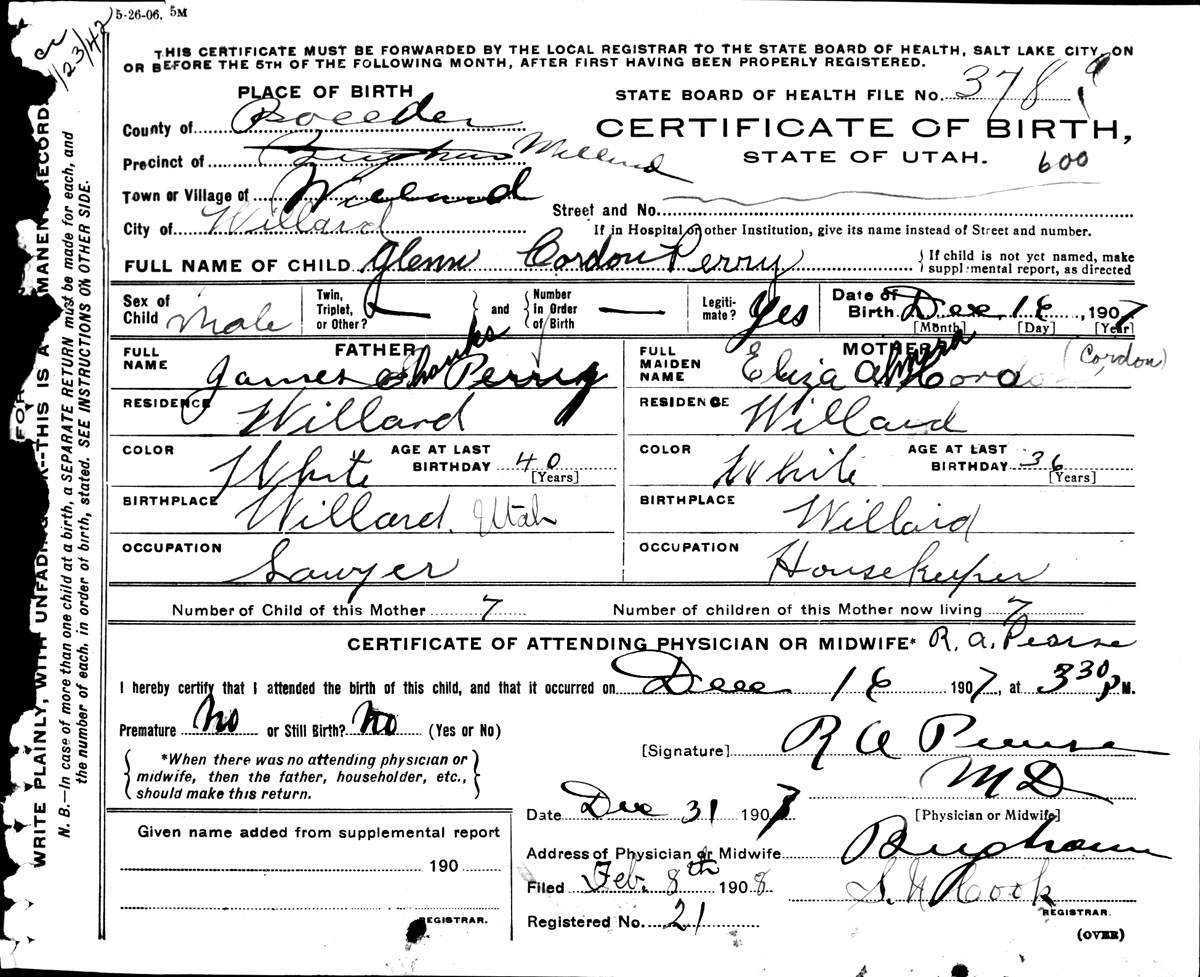 5-26-06. 5M
1/23/42
THIS CERTIFICATE MUST BE FORWARDED BY THE LOCAL REGISTRAR TO THE STATE BOARD OF HEALTH, SALT LAKE CITY, ON
OR BEFORE THE 5TH OF THE FOLLOWING MONTH, AFTER FIRST HAVING BEEN PROPERLY REGISTERED.
PLACE OF BIRTH
STATE BOARD OF HEALTH FILE No. 378
County of
CERTIFICATE OF BIRTH,
Precinct of Willard
STATE OF UTAH. 600
Town or Village of Willard
Street and No.
City of Willard
If in Hospital or other Institution, give its name instead of Street and number.
FULL NAME OF CHILD Glenn Cordon Perry
{ If child is not yet named, make supplmental report, as directed
Sex of Child Male
Twin, Triplet, or Other? — } and { Number in Order of Birth —
Legiti-mate? Yes
Date of Birth Dec 16, 1907
[Month] [Day] [Year]
FATHER
FULL NAME James Shanks Perry
MOTHER
FULL MAIDEN NAME Eliza Almira Cordon (Cordon)
RESIDENCE Willard
RESIDENCE Willard
COLOR White AGE AT LAST BIRTHDAY 40 [Years]
COLOR White AGE AT LAST BIRTHDAY 36 [Years]
BIRTHPLACE Willard, Utah
BIRTHPLACE Willard
OCCUPATION Sawyer
OCCUPATION Housekeeper
Number of Child of this Mother 7
Number of children of this Mother now living 7
CERTIFICATE OF ATTENDING PHYSICIAN OR MIDWIFE* R. A. Pearse
I hereby certify that I attended the birth of this child, and that it occurred on Dec 16 1907, at 3 30 P M.
Premature No or Still Birth? No (Yes or No)
[Signature] R A Pearse
M D
[Physician or Midwife]
{ *When there was no attending physician or
midwife, then the father, householder, etc.,
should make this return. }
Date Dec 31 1907
Given name added from supplemental report
190
REGISTRAR.
Address of Physician or Midwife Brigham
Filed Feb. 8th 1908
S. N Cook
REGISTRAR.
Registered No. 21
(OVER)
WRITE PLAINLY, WITH UNFADING INK--THIS IS A PERMANENT RECORD.
N. B.—In case of more than one child at a birth, a SEPARATE RETURN must be made for each, and
the number of each, in order of birth, stated. SEE INSTRUCTIONS ON OTHER SIDE.